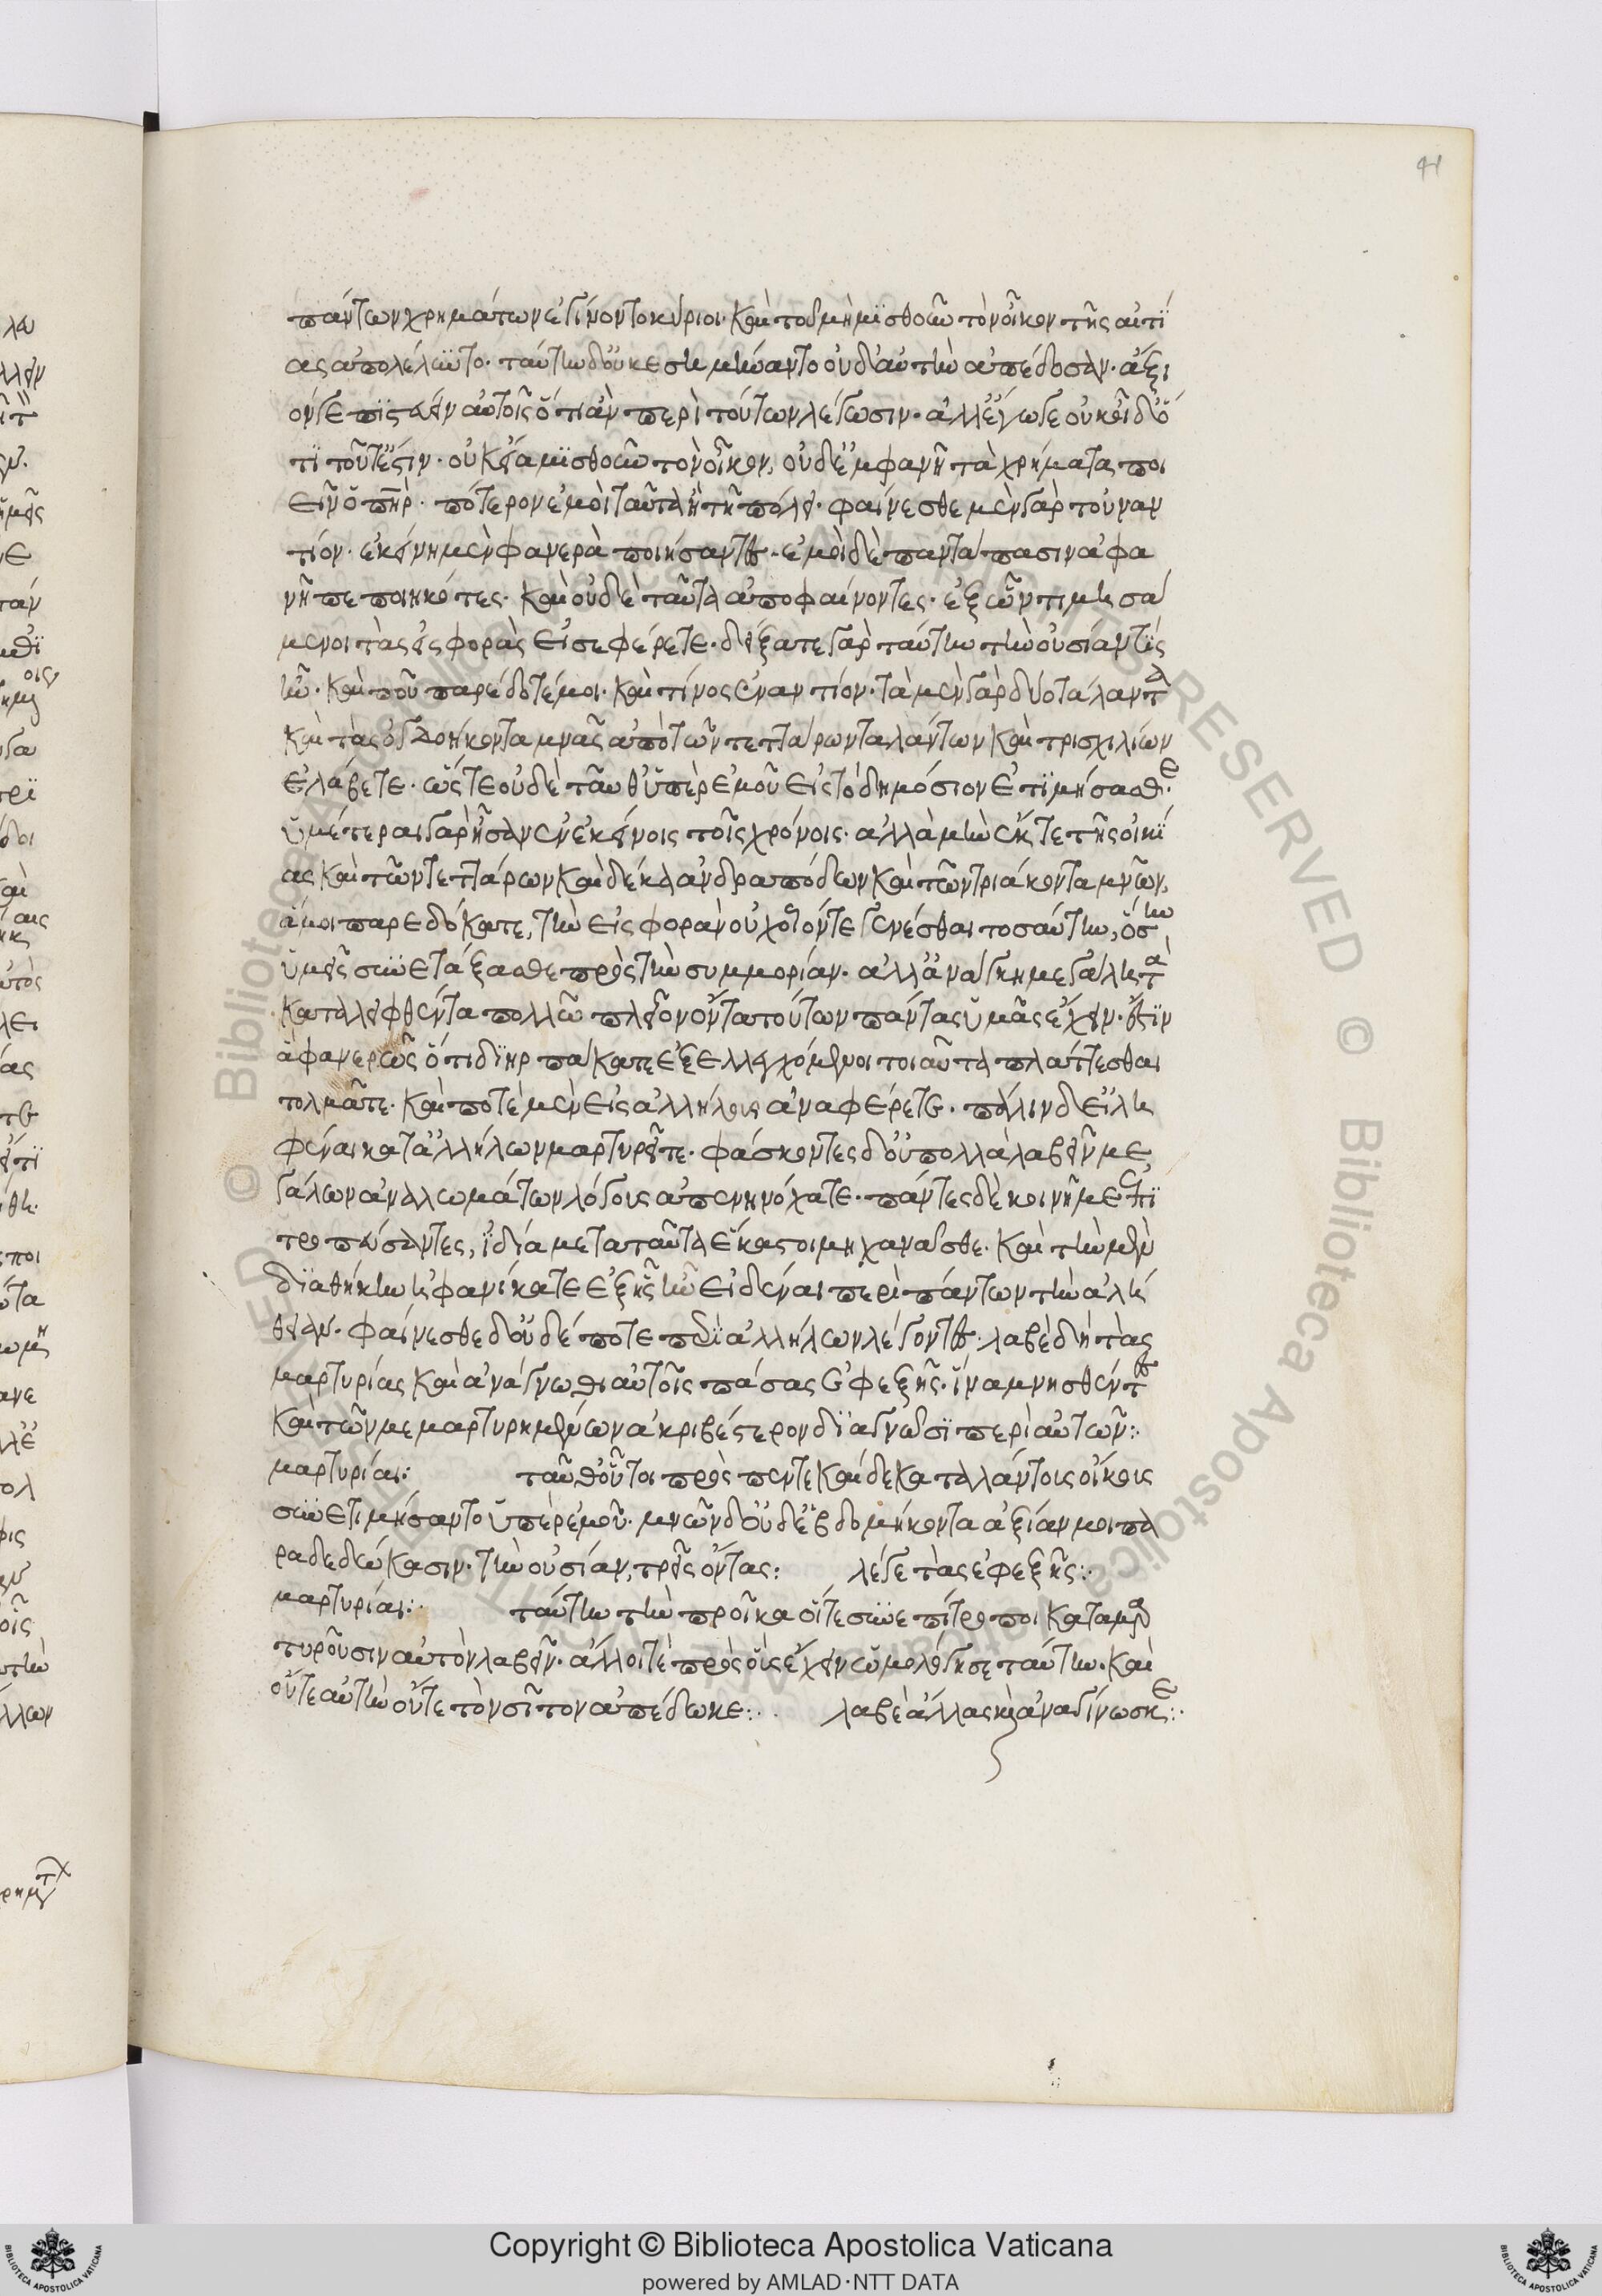 41
πάντων χρημάτων ἐγίνοντο κύριοι. καὶ τοῦ μὴ μϊσθοῦν τὸν οἶκον τῆς αἰτί
ας ἀπολέλυντο. ταύτην δ' οὐκ ἐσημήναντο οὐδ' αὐτὴν ἀπέδοσαν. ἄξι
όν γε πϊστεύειν αὐτοῖς ὅτι ἂν περὶ τούτων λέγωσιν. ἀλλ' ἔγωγε οὐκ οἶδ' ὅ
τϊ τοῦτ' ἐστίν. οὐκ εἴα μϊσθοῦν τὸν οἶκον, οὐδ' ἐμφανῆ τὰ χρήματα ποι
εῖν ὁ πηρ. πότερον ἐμοὶ ταῦτα ἢ τῇ πόλει. φαίνεσθε μὲν γὰρ τοὐναν
τίον. ἐκείνῃ μὲν φανερὰ ποιήσαντες. ἐμοὶ δὲ πανταπασιν ἀφα
νῆ πεποιηκότες. καὶ οὐδὲ ταῦτα ἀποφαίνοντες. ἐξ ὧν τιμησά
μενοι τὰς εἰσφορὰς εἰσεφέρετε. δείξατε γὰρ ταύτην τὴν οὐσίαν τίς
ἦν. καὶ ποῦ παρέδοτέ μοι. καὶ τίνος ἐναντίον. τὰ μὲν γὰρ δύο τάλαντα
καὶ τὰς ὀγδοήκοντα μνᾶς ἀπὸ τῶν τεττάρων ταλάντων καὶ τρισχιλίων
ἐλάβετε. ὥστε οὐδὲ ταῦθ' ὑπὲρ ἐμοῦ εἰς τὸ δημόσιον ἐτϊμήσασθε.
ὑμέτεραι γὰρ ἦσαν ἐν ἐκείνοις τοῖς χρόνοις. ἀλλὰ μὴν ἔκ τε τῆς οἰκί
ας καὶ τῶν τεττάρων καὶ δέκα ἀνδραπόδων καὶ τῶν τριάκοντα μνῶν,
ἅ μοι παρεδόκατε, τὴν εἰσφορὰν οὐχ οἷόν τε γενέσθαι τοσαύτην, ὅσην
ὑμεῖς συνετάξασθε πρὸς τὴν συμμορίαν. ἀλλ' ἀνάγκη μεγάλη τὰ
καταλειφθέντα πολλῷ πλείον' ὄντα τούτων πάντας ὑμᾶς ἔχειν. ἔστϊν
ἃ φανερῶς ὅτι διηρπάκατε ἐξελλεγχόμενοι τοιαῦτα πλάττεσθαι
τολμᾶτε. καὶ ποτὲ μὲν εἰς ἀλλήλους ἀναφέρετε. πάλιν δ' εἰλη
φέναι κατ' ἀλλήλων μαρτυρεῖτε. φάσκοντες δ' οὐ πολλὰ λαβεῖν με
γάλων ἀναλωμάτων λόγους ἀπενηνόχατε. πάντες δὲ κοινῇ με ἐπϊ
τροπεύσαντες, ἰδίᾳ μετὰ ταῦτα ἕκαστοι μηχανᾶσθε. καὶ τὴν μὲν
δϊαθήκην ἠφανίκατε ἐξ ἧς ἦν εἰδέναι περὶ πάντων τὴν ἀλή
θειαν. φαίνεσθε δ' οὐδέποτε περὶ ἀλλήλων λέγοντες. λαβὲ δὴ τὰς
μαρτυρίας καὶ ἀνάγνωθι αὐτοῖς πάσας ἐφεξῆς. ἵνα μνησθέντες
καὶ τῶν μεμαρτυρημένων ἀκριβέστερον δϊαγνῶσϊ περὶ αὐτῶν:.
μαρτυρίαι: ταῦθ' οὗτοι πρὸς πεντεκαίδεκα ταλάντοις οἴκοις
συνετιμήσαντο ὑπὲρ ἐμοῦ. μνῶν δ' οὐδ' ἑβδομήκοντα ἀξίαν μοι πα
ραδεδώκασιν. τὴν οὐσίαν, τρεῖς ὄντας: λέγε τὰς ἐφεξῆς:.
μαρτυρίαι:. ταύτην τὴν προῖκα οἵ τε συνεπίτροποι καταμαρ
τυροῦσιν αὐτὸν λαβεῖν. ἄλλοι τὲ πρὸς οὓς ἔχειν ὡμολόγησε ταύτην. καὶ
οὔτε αὐτὴν οὔτε τὸν σῖτον ἀπέδωκε:. λαβὲ ἄλλας καὶ ἀναγίνωσκε:.
Copyright © Biblioteca Apostolica Vaticana
powered by AMLAD·NTT DATA